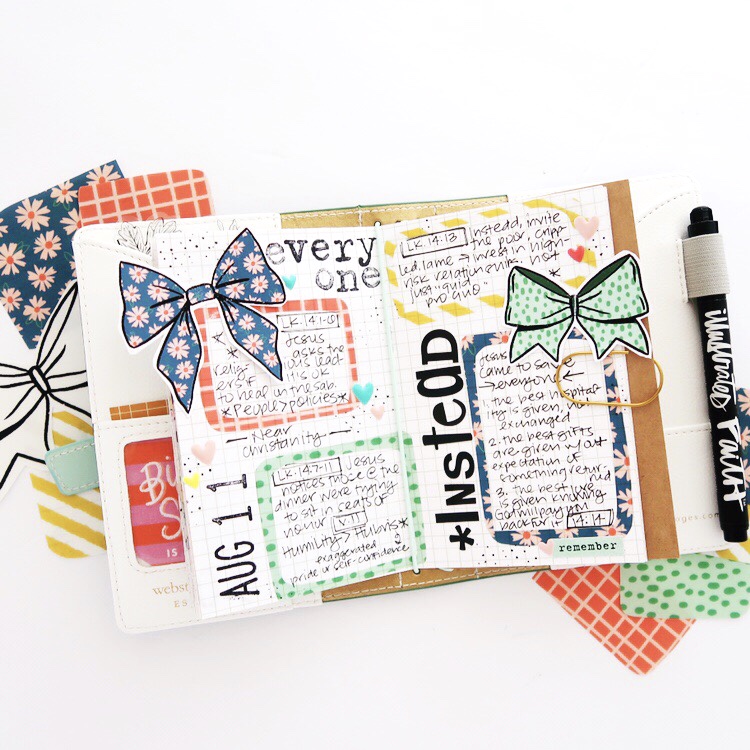 every
one
LK. 14:1-6
Jesus
asks the
relig- ious lead-
ers if it is ok
to heal on the sab.
*People > policies*
Near
christianity
LK. 14:7-11
Jesus
notices those @ the
dinner were trying
to sit in seats of
honor
V. 11
Humility ↔ Hubris*
exaggerated
pride or self-confidence
AUG 11
LK. 14:13
Instead, invite
the poor, cripp-
led, lame → invest in high-
risk relationships, not
just "quid
pro quo"
*INSTEAD
Jesus
came to save
→ everyone ←
1. the best hospital-
ity is given, not
exchanged
2. the best gifts
are given w/out
expectation of
something
3. the best love
is given knowing
God will pay
back for it
14:14
remember
illustrated Faith
Bi
S
15
webst
ES
ages.com